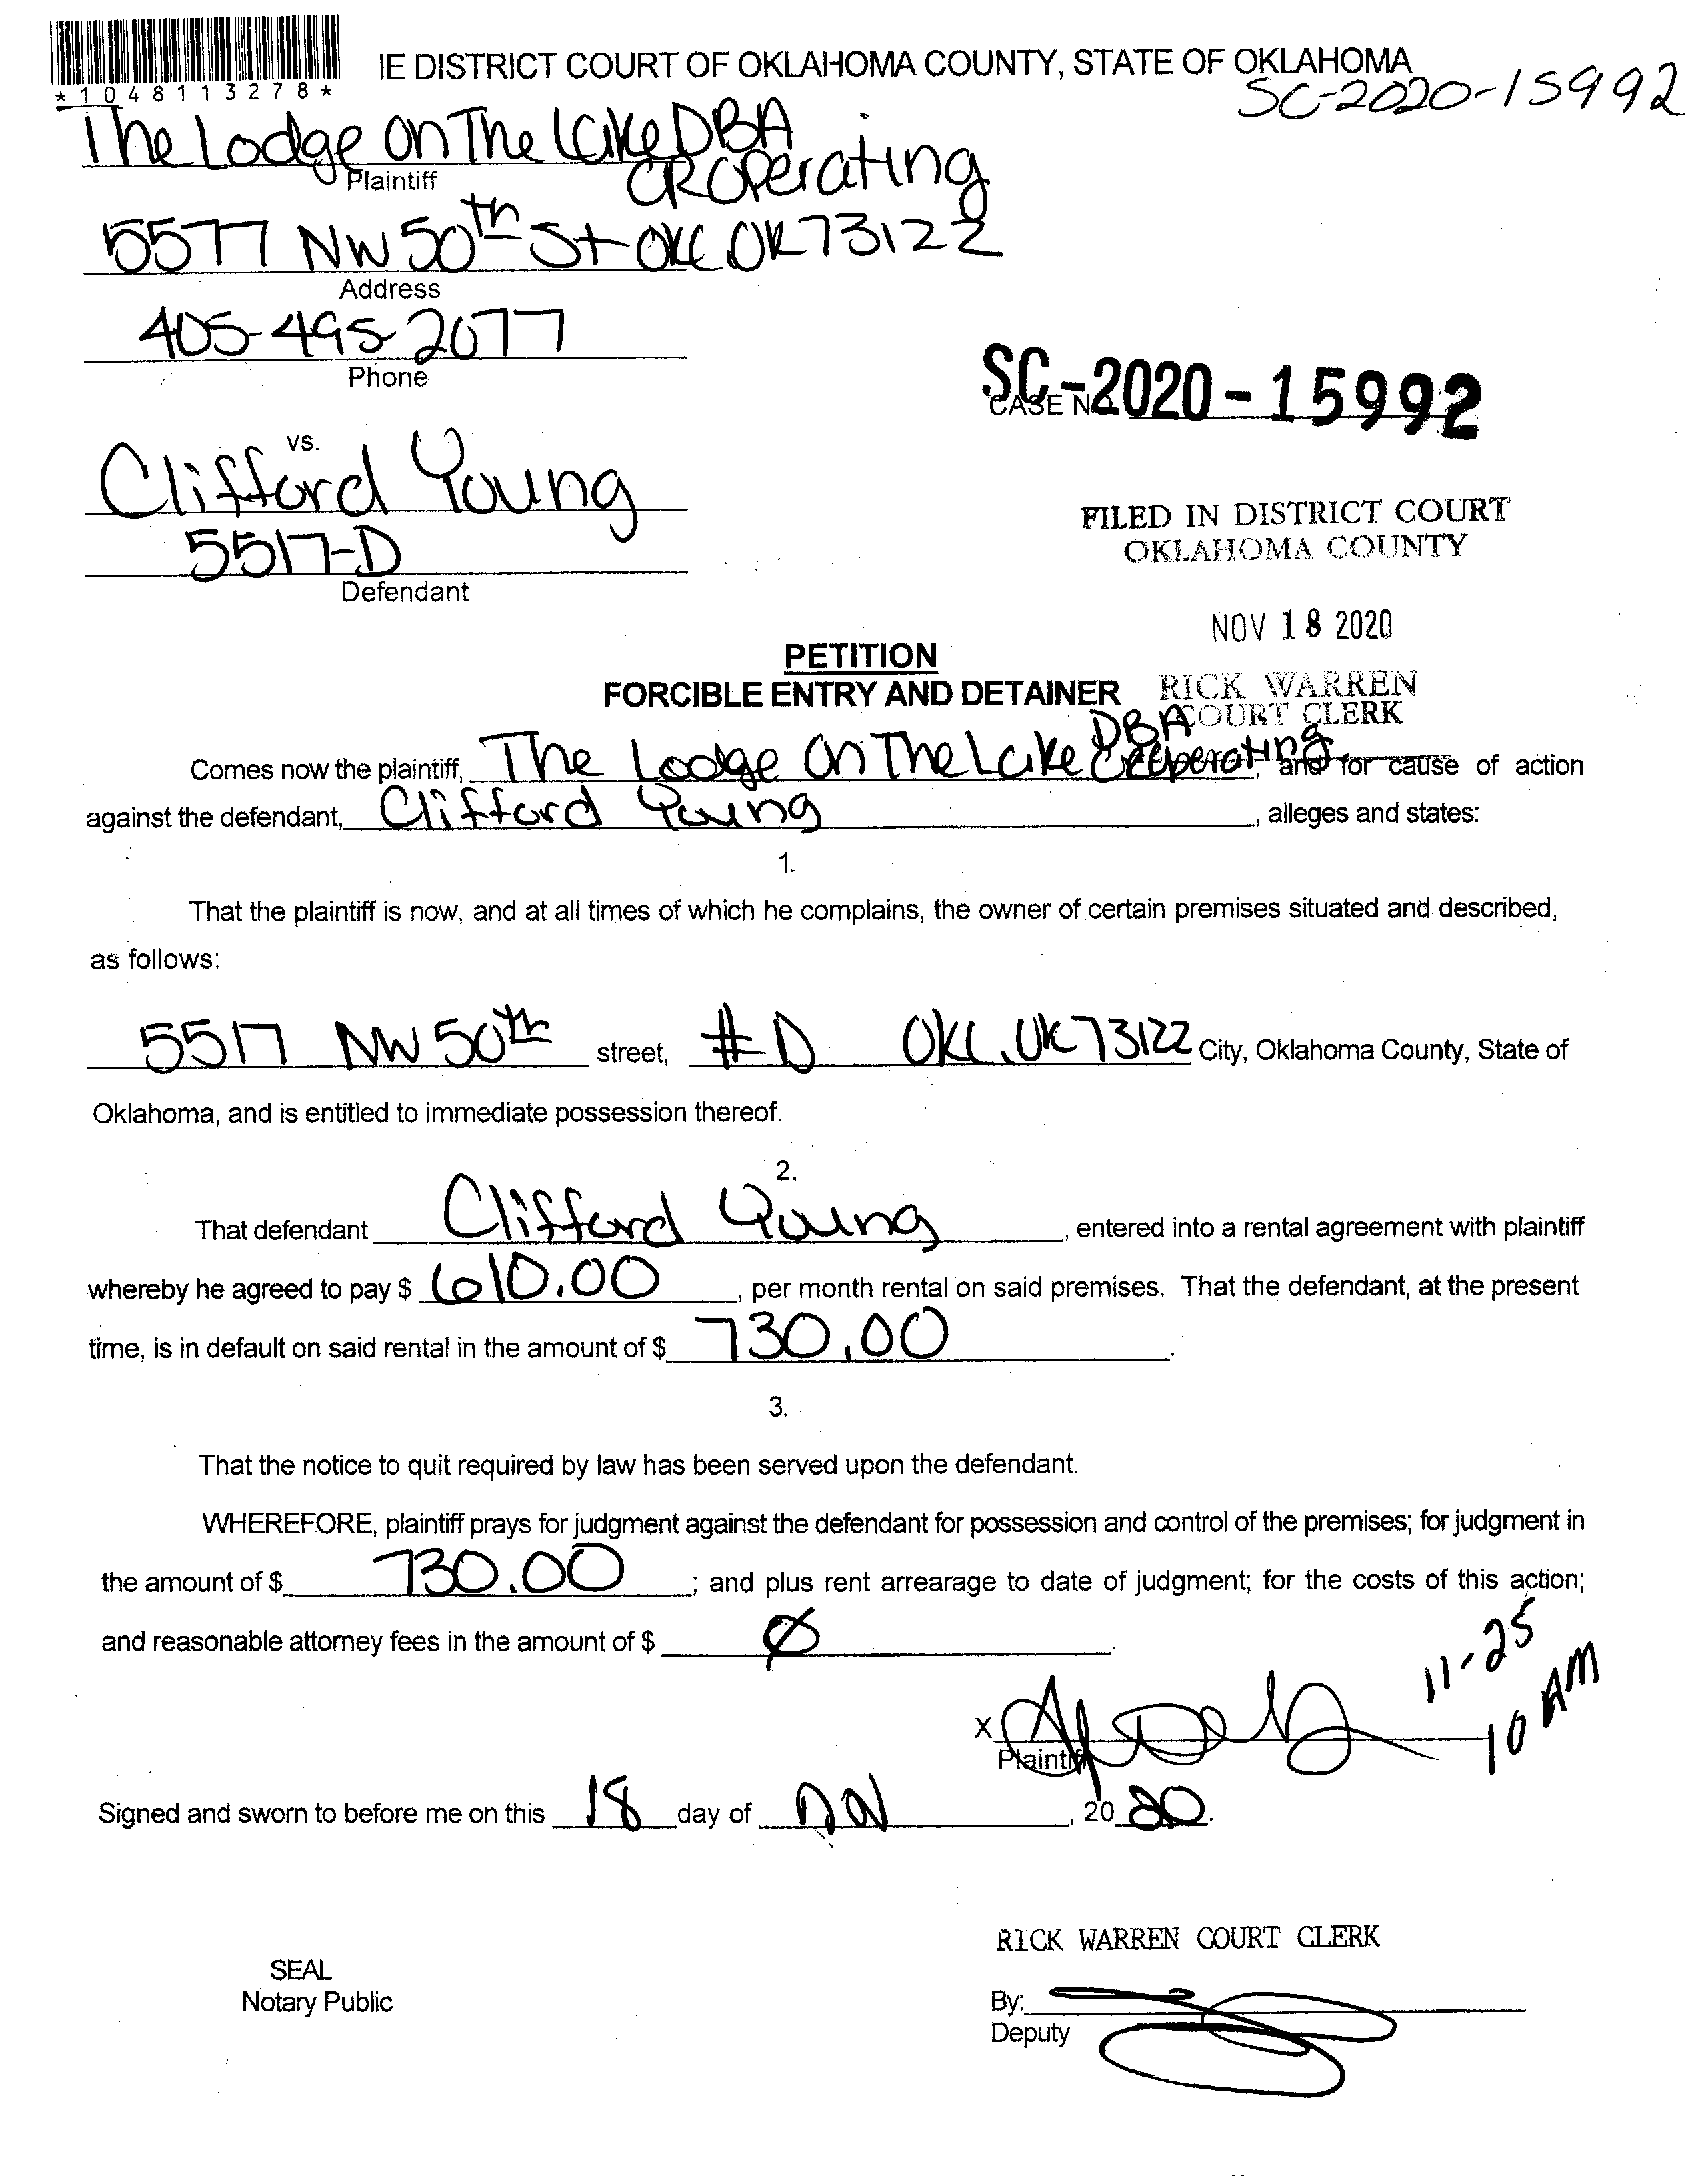 IE DISTRICT COURT OF OKLAHOMA COUNTY, STATE OF OKLAHOMA
*1048113278*
SC-2020-15992
The Lodge on The Lake DBA
CR Operating
Plaintiff
5577 NW 50th St OKC OK 73122
Address
405-495-2077
Phone
SC-2020-15992
CASE NO.
vs.
Clifford Young
5517-D
Defendant
FILED IN DISTRICT COURT
OKLAHOMA COUNTY
NOV 18 2020
RICK WARREN
COURT CLERK
PETITION
FORCIBLE ENTRY AND DETAINER
Comes now the plaintiff, The Lodge On The Lake DBA CR Operating, and for cause of action
against the defendant, Clifford Young, alleges and states:
1.
That the plaintiff is now, and at all times of which he complains, the owner of certain premises situated and described,
as follows:
5517 NW 50th street, #D OKC, OK 73122 City, Oklahoma County, State of
Oklahoma, and is entitled to immediate possession thereof.
2.
That defendant Clifford Young, entered into a rental agreement with plaintiff
whereby he agreed to pay $ 610.00, per month rental on said premises. That the defendant, at the present
time, is in default on said rental in the amount of $ 730.00.
3.
That the notice to quit required by law has been served upon the defendant.
WHEREFORE, plaintiff prays for judgment against the defendant for possession and control of the premises; for judgment in
the amount of $ 730.00; and plus rent arrearage to date of judgment; for the costs of this action;
and reasonable attorney fees in the amount of $ Ø.
11-25
10 AM
X
Plaintiff
Signed and sworn to before me on this 18 day of Nov, 2020.
RICK WARREN COURT CLERK
SEAL
Notary Public
By:
Deputy